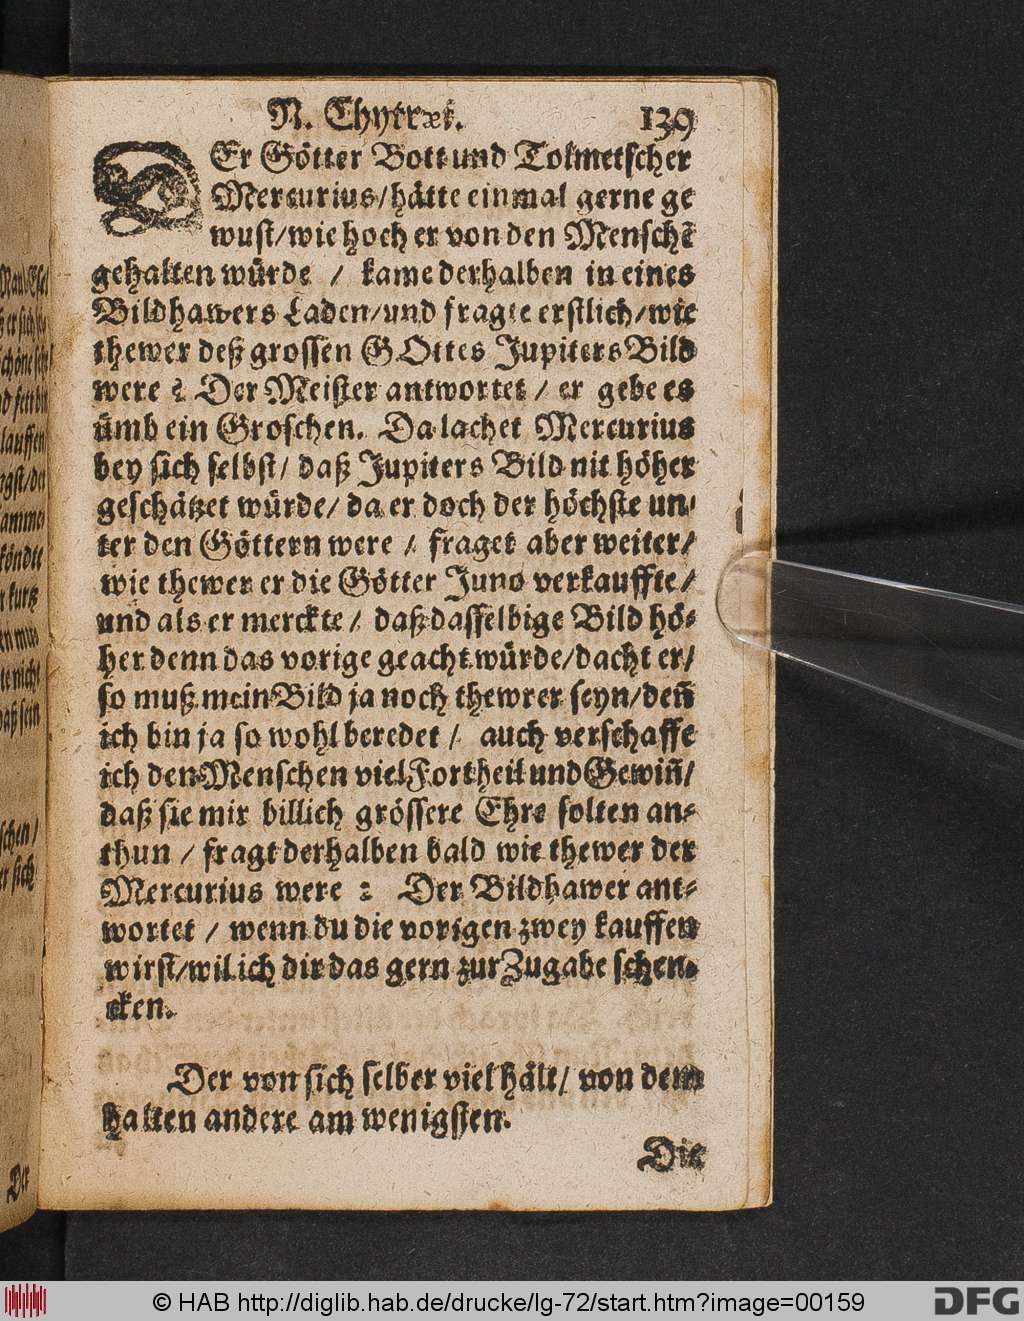 N. Chytræi. 139
DEr Götter Bott und Tolmetscher
Mercurius/hätte einmal gerne ge
wust/wie hoch er von den Mensche͂
gehalten würde / kame derhalben in eines
Bildhawers Laden/und fragte erstlich/wie
thewer deß grossen GOttes Jupiters Bild
were? Der Meister antwortet / er gebe es
ümb ein Groschen. Da lachet Mercurius
bey sich selbst/ daß Jupiters Bild nit höher
geschätzet würde/ da er doch der höchste un-
ter den Göttern were / fraget aber weiter/
wie thewer er die Götter Juno verkauffte/
und als er merckte/ daß dasselbige Bild hö-
her denn das vorige geacht würde/dacht er/
so muß mein Bild ja noch thewrer seyn/den̅
ich bin ja so wohl beredet / auch verschaffe
ich den Menschen viel Fortheil und Gewin̅/
daß sie mir billich grössere Ehre solten an-
thun / fragt derhalben bald wie thewer der
Mercurius were? Der Bildhawer ant-
wortet / wenn du die vorigen zwey kauffen
wirst/wil ich dir das gern zur Zugabe schen-
cken.
Der von sich selber viel hält/ von dem
halten andere am wenigsten.
Die
Der
© HAB http://diglib.hab.de/drucke/lg-72/start.htm?image=00159
DFG